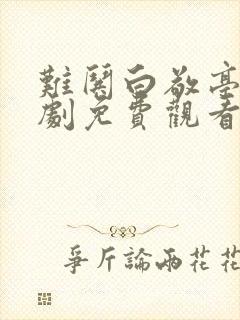 難哄白敬亭
劇免費觀看
爭斤論兩花花